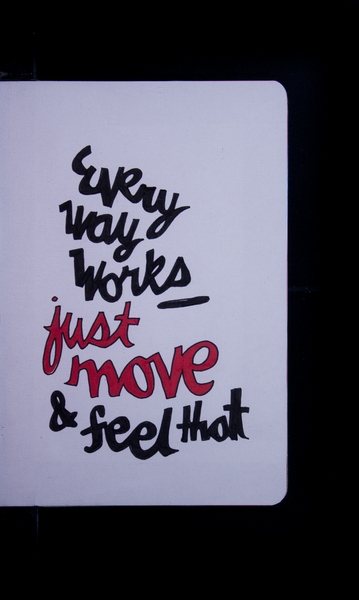 Every
way
works
just
move
& feel that